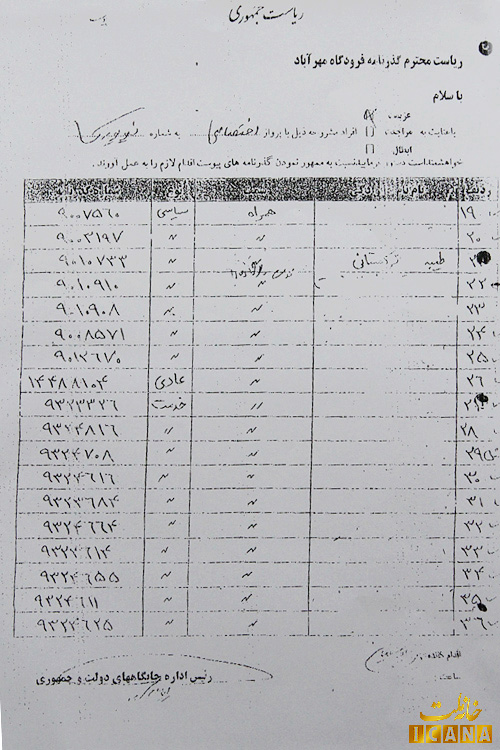 ریاست جمهوری
ریاست محترم گذرنامه فرودگاه مهرآباد
با سلام
عزیمت
با عنایت به مراجعت افراد مشروحه ذیل با پرواز اختصاصی به شماره نیویورک
خواهشمند است دستور فرمایید نسبت به ممهور نمودن گذرنامه های پیوست اقدام لازم را به عمل آورند.
ردیف نام سمت نوع شماره گذرنامه
۱۹ همراه سیاسی ۹۰۰۷۵۶۰
۲۰ " " ۹۰۰۳۱۹۷
طیبه " ۹۰۱۰۷۳۳
۲۲ " " ۹۰۱۰۹۱۰
۲۳ " " ۹۰۱۰۹۰۸
۲۴ " " ۹۰۰۸۵۷۱
۲۵ " " ۹۰۱۲۶۷۰
۲۶ " عادی ۱۴۴۸۸۱۰۴
" خدمت ۹۳۲۳۳۲۶
۲۸ " " ۹۳۲۴۸۱۶
۲۹ " " ۹۳۲۴۷۰۸
۳۰ " " ۹۳۲۴۶۱۶
۳۱ " " ۹۳۲۳۶۸۴
۳۲ " " ۹۳۲۴۶۶۴
۳۳ " " ۹۳۲۴۶۱۴
۳۴ " " ۹۳۲۴۶۵۵
۳۵ " " ۹۳۲۴۶۱۱
۳۶ " " ۹۳۲۴۶۲۵
اقدام کننده:
ساعت:
رئیس اداره جایگاههای دولت و جمهوری
خانه ملت
ICANA